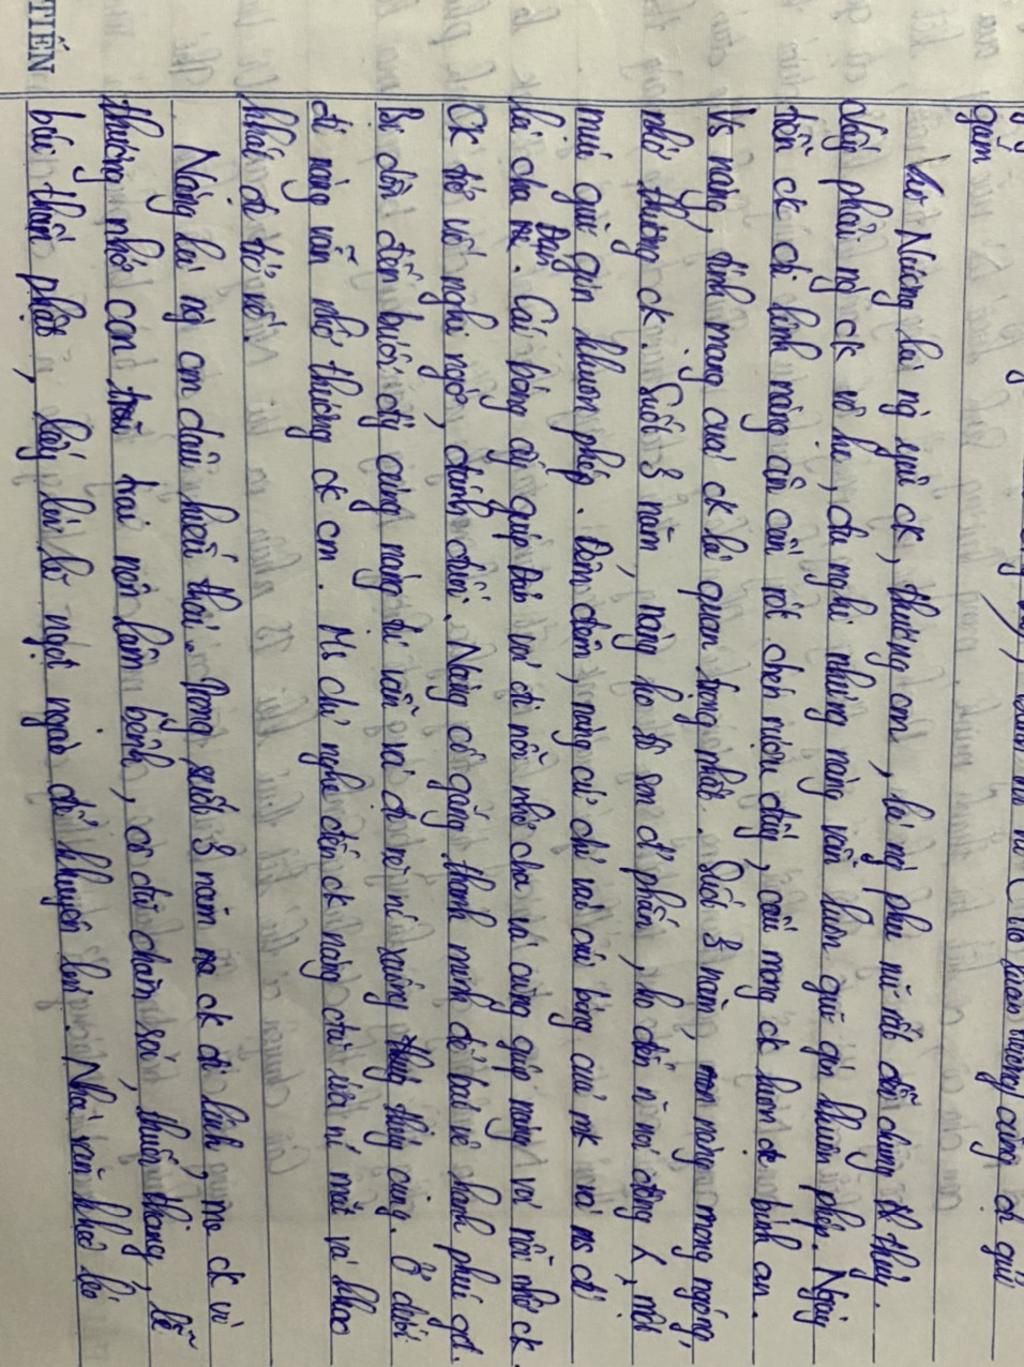 gắm
Vũ Nương là ng yêu ck, thương con, là ng phụ nữ rất đỗi chung thuỷ.
Lấy phải ng ck vô học, đa nghi nhưng nàng vẫn luôn giữ gìn khuôn phép. Ngày
tiễn ck đi lính nàng ân cần rót chén rượu đầy, cầu mong ck luôn đc bình an.
Vs nàng, tính mạng của ck là quan trọng nhất. Suốt 3 năm, nàng mong ngóng,
nhớ thương ck. Suốt 3 năm, nàng ko tô son đ' phấn, ko đến n' nơi đông
mực giữ gìn khuôn phép. Đêm đêm, nàng cứ chỉ vào cái bóng của mk và ns đó
là cha Đản. Cái bóng ấy giúp Đản vơi đi nỗi nhớ cha và cũng giúp nàng vơi nỗi nhớ ck.
Ck trở về nghi ngờ, đánh đuổi. Nàng cố gắng thanh minh để bảo vệ hạnh phúc gđ.
Bị dồn đến bước đg cùng nàng đi xuống thuỷ cung. Ở dưới
đó nàng vẫn nhớ thương ck con. Ms chỉ nghe đến ck nàng đã ứa nc mắt và khao
khát đc trở về.
Nàng là ng con dâu hiếu thảo. Trong suốt 3 năm mà ck đi lính, mẹ ck vì
thương nhớ con trai nên lâm bệnh, cô đã chăm sóc, thuốc thang, lễ
bái thần phật, lấy lời lẽ ngọt ngào để khuyên lơn. Nhà văn khéo léo
TIẾN